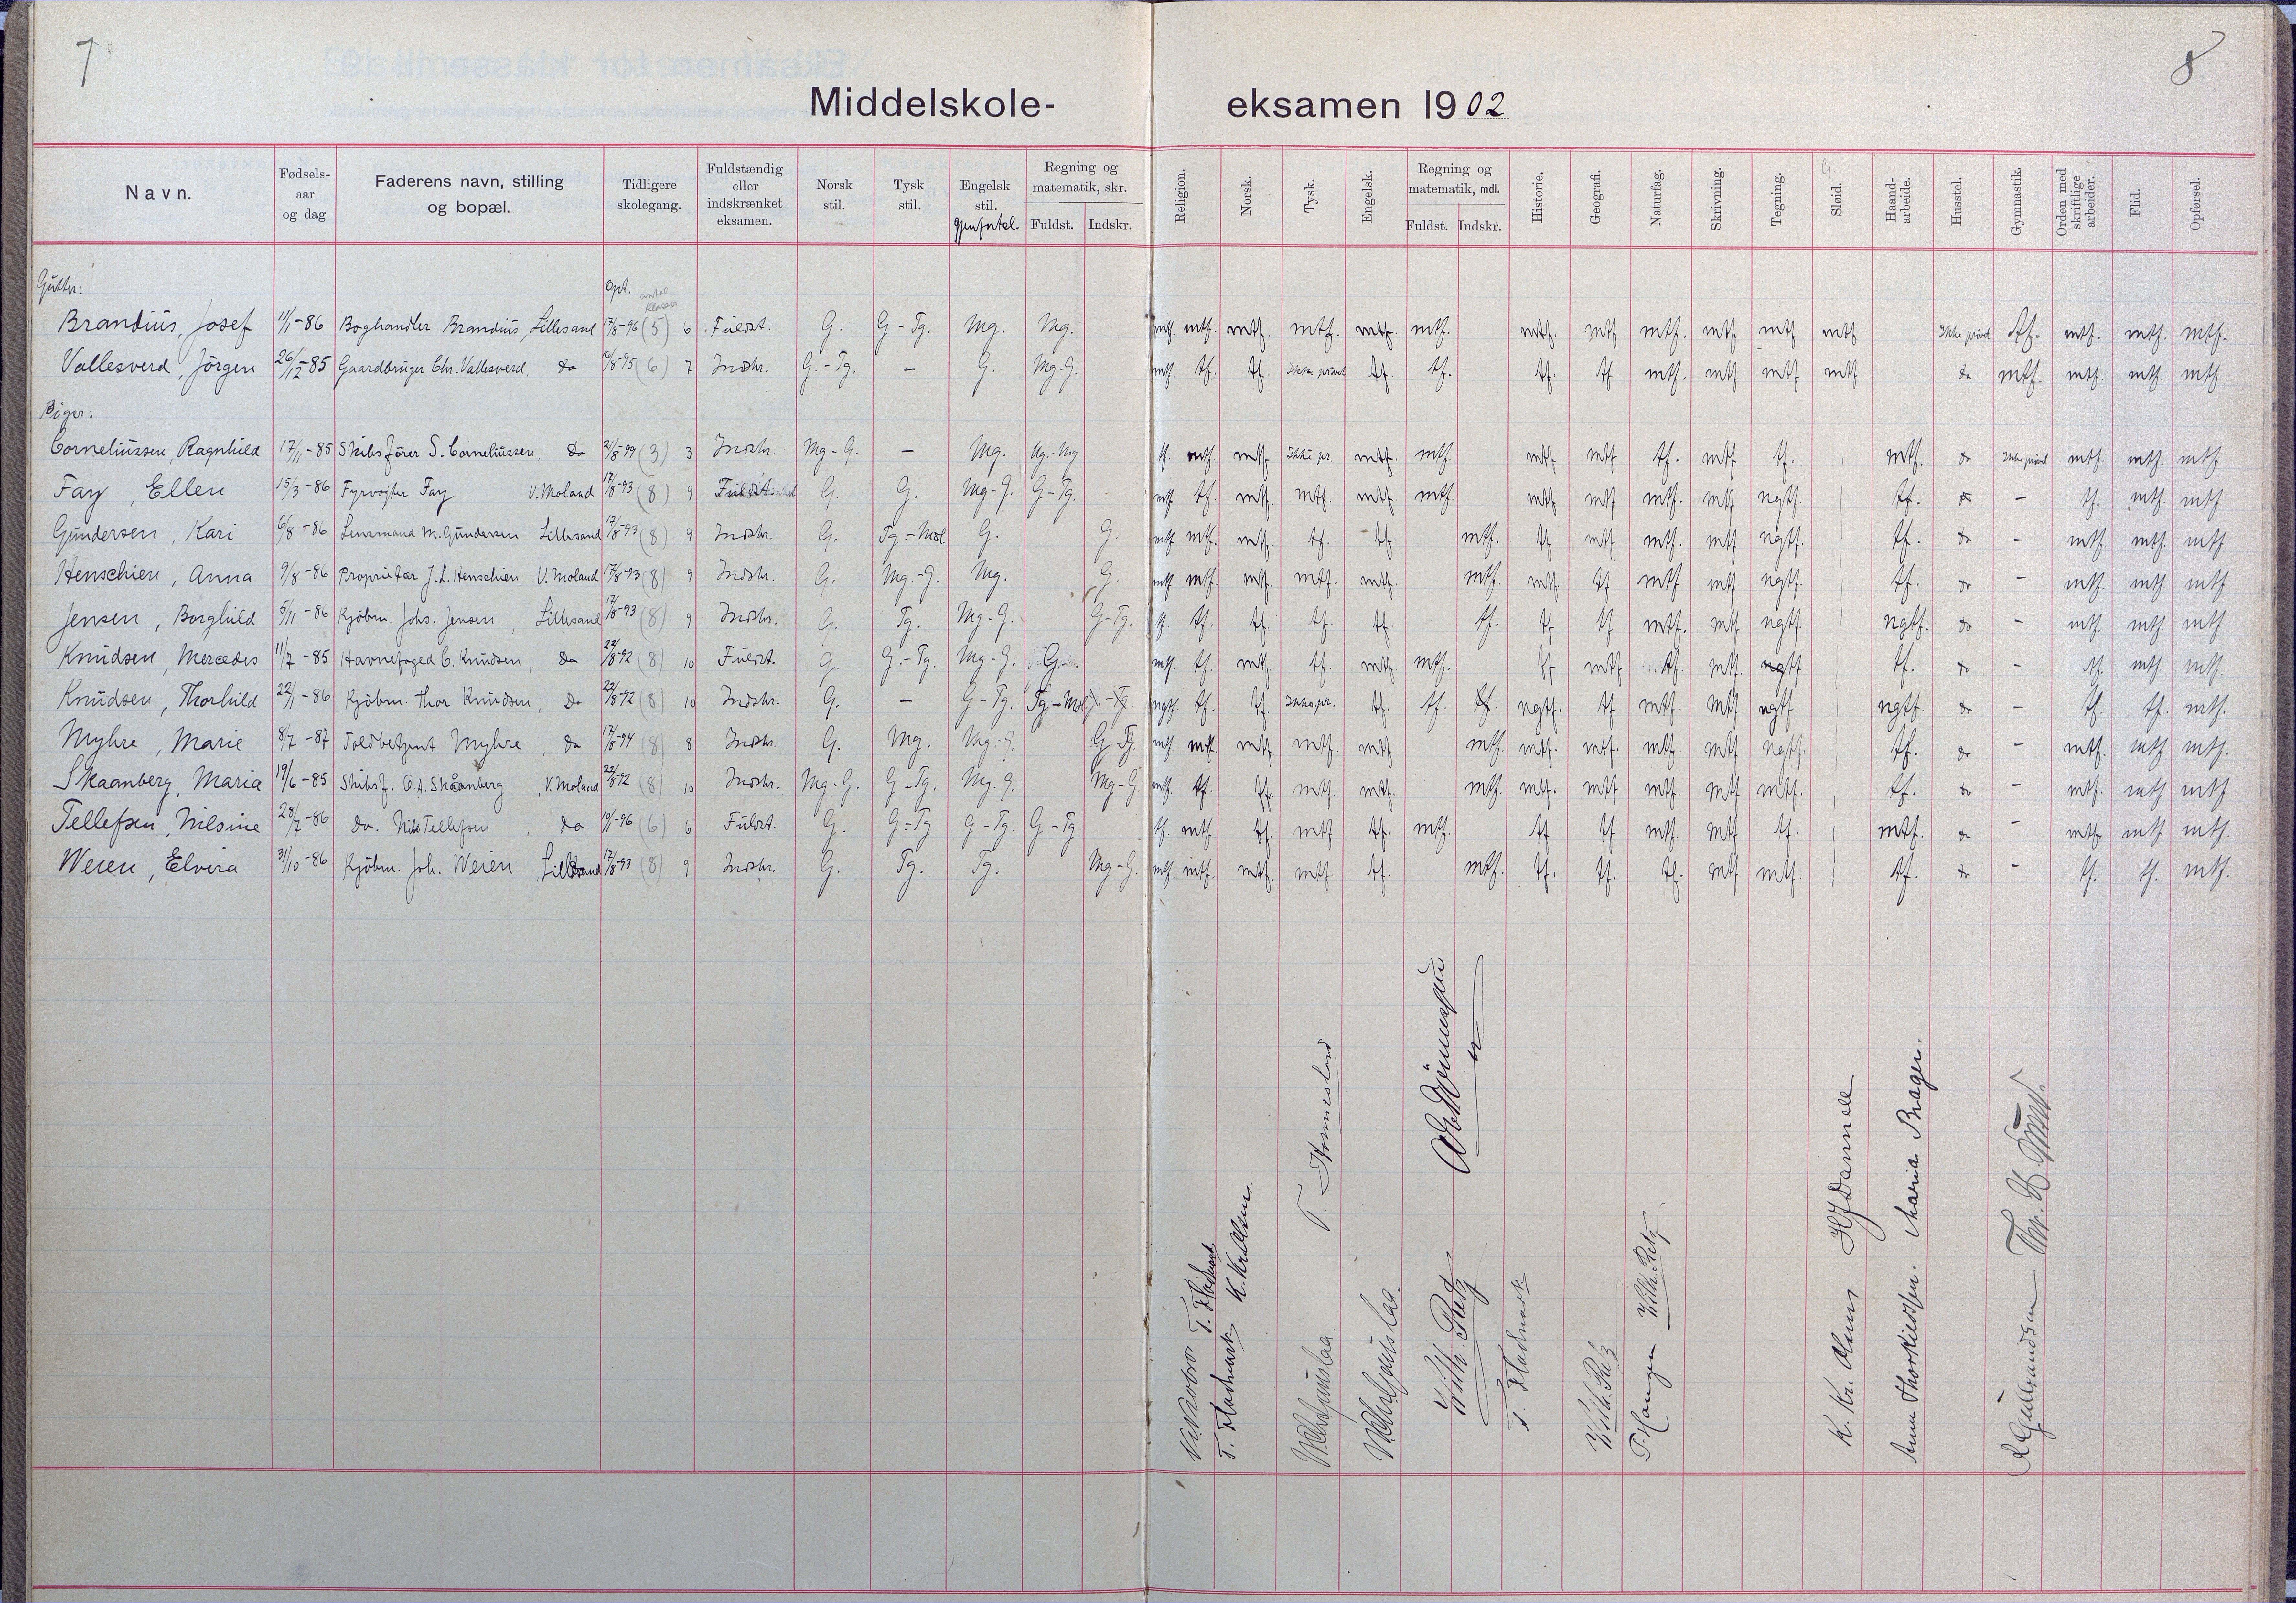 7
8
Middelskole-eksamen 1902
Navn. Fødsels-aar og dag Faderens navn, stilling og bopæl. Tidligere skolegang. Fuldstændig eller indskrænket eksamen. Norsk stil. Tysk stil. Engelsk stil. gjenfortel. Regning og matematik, skr. Fuldst. Indskr. Religion. Norsk. Tysk. Engelsk. Regning og matematik, mdl. Fuldst. Indskr. Historie. Geografi. Naturfag. Skrivning. Tegning. Sløid. Haand-arbeide. Husstel. Gymnastik. Orden med skriftlige arbeider. Flid. Opførsel.
Gutter: Opt. antal klasser
Brandius, Josef 11/1-86 Boghandler Brandius, Lillesand 17/8-96 (5) 6 Fuldst. G. G-Tg. Mg. Mg. mtf. mtf. mtf. mtf. mtf. mtf. mtf. mtf mtf. mtf mtf mtf Ikke prövet tf. mtf. mtf. mtf.
Vallesverd, Jörgen 26/12-85 Gaardbruger Chr. Vallesverd, do /8-95 (6) 7 Indskr. G.-Tg. – G. Mg-G. mtf. tf. tf. Ikke prövet tf. tf. tf. tf mtf. mtf mtf mtf do mtf. mtf. mtf. mtf.
Piger:
Corneliussen, Ragnhild 17/11-85 Skibsförer S. Corneliussen, do 21/8-99 (3) 3 Indskr. Mg-G. – Mg. Ug.-Mg tf. mtf. mtf Ikke pr. mtf. mtf. mtf mtf tf. mtf tf. mtf. do Ikke prövet mtf. mtf. mtf
Fay, Ellen 15/3-86 Fyrvogter Fay V. Moland 17/8-93 (8) 9 Fuldst. G. G. Mg-G. G-Tg. mtf tf. mtf. mtf. mtf. mtf. mtf mtf mtf. mtf ngtf. tf. do – tf. mtf. mtf
Gundersen, Kari 6/8-86 Lensmand M. Gundersen Lillesand 17/8-93 (8) 9 Indskr. G. Tg.-Mdl. G. G. mtf. mtf. mtf. tf. tf. mtf. tf mtf mtf. mtf ngtf. tf. do – mtf. mtf. mtf
Henschien, Anna 9/8-86 Proprietær J. L. Henschien V. Moland 17/8-93 (8) 9 Indskr. G. Mg.-G. Mg. G. mtf mtf. mtf. mtf. mtf. mtf. mtf tf mtf mtf ngtf. tf. do – mtf. mtf mtf
Jensen, Borghild 5/11-86 Kjöbm. Johs. Jensen, Lillesand 17/8-93 (8) 9 Indskr. G. Tg. Mg-G. G-Tg. tf. tf. tf. tf. tf. tf. tf tf mtf. mtf ngtf. ngtf. do – mtf. mtf. mtf
Knudsen, Mercedes 11/7-85 Havnefoged C. Knudsen, do 22/8-92 (8) 10 Fuldst. G. G.-Tg. Mg-G. G. mtf. tf. mtf. tf. mtf. mtf. tf mtf tf. mtf. ngtf tf. do – tf. mtf mtf.
Knudsen, Thorhild 22/1-86 Kjöbm. Thor Knudsen, do 22/8-92 (8) 10 Indskr. G. – G-Tg. Tg.-Mdl -Tg. ngtf. tf. tf. Ikke pr. tf. tf. tf. ngtf. tf mtf. mtf ngtf ngtf. do – tf. tf. mtf.
Myhre, Marie 8/7-87 Toldbetjent Myhre, do 17/8-94 (8) 8 Indskr. G. Mg. Mg.-G. G-Tg. mtf mtf mtf. mtf. mtf mtf. mtf. mtf. mtf. mtf ngtf. tf. do – mtf. mtf mtf.
Skaanberg, Maria 19/6-85 Skibsf. O. A. Skaanberg, V. Moland 22/8-92 (8) 10 Indskr. Mg-G. G-Tg. Mg-G. Mg-G mtf. tf. tf. mtf. mtf. mtf. mtf. mtf mtf. mtf mtf. tf. do – mtf. mtf mtf.
Tellefsen, Nilsine 28/7-86 do. Nils Tellefsen, do 10/1-96 (6) 6 Fuldst. G. G-Tg G-Tg. G-Tg tf. mtf. tf. mtf tf. mtf. tf tf mtf. mtf tf. mtf. do – mtf. mtf mtf.
Weien, Elvira 31/10-86 Kjöbm. Joh. Weien Lillesand 17/8-93 (8) 9 Indskr. G. Tg. Tg. Mg-G. mtf. mtf. mtf. mtf. tf. mtf. tf. tf. tf. mtf mtf. tf. do – tf. tf. mtf.
T. Fladmark
T. Fladmark K. Kr. Olsen
T. Hommesland
Vilh. Retz
T. Fladmark
Vilh. Retz
T. Haugen Vilh. Retz
K. Kr. Olsen HJDannell
Anna Thorkildsen. Maria Bragen.